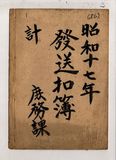 昭和十七年
發送扣簿
庶務課
計